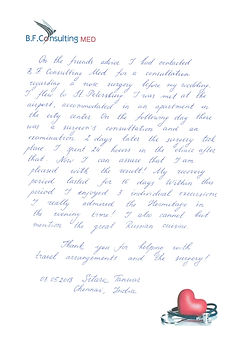 B.F.Consulting MED
On the friends advice I had contacted
B.F. Consulting Med for a consultation
regarding a nose surgery before my wedding.
I flew to St. Petersburg. I was met at the
airport, accommodated in an apartment in
the city center. On the following day there
was a surgeon's consultation and an
examination. 2 days later the surgery took
place. I spent 24 hours in the clinic after
that. Now I can assure that I am
pleased with the result! My recovery
period lasted for 14 days. Within this
period I enjoyed 3 individual excursions.
I really admired the Hermitage in
the evening time! I also cannot but
mention the great Russian cuisine.
Thank you for helping with
travel arrangements and the surgery!
01.05.2018 Tanwar
Chennai, India